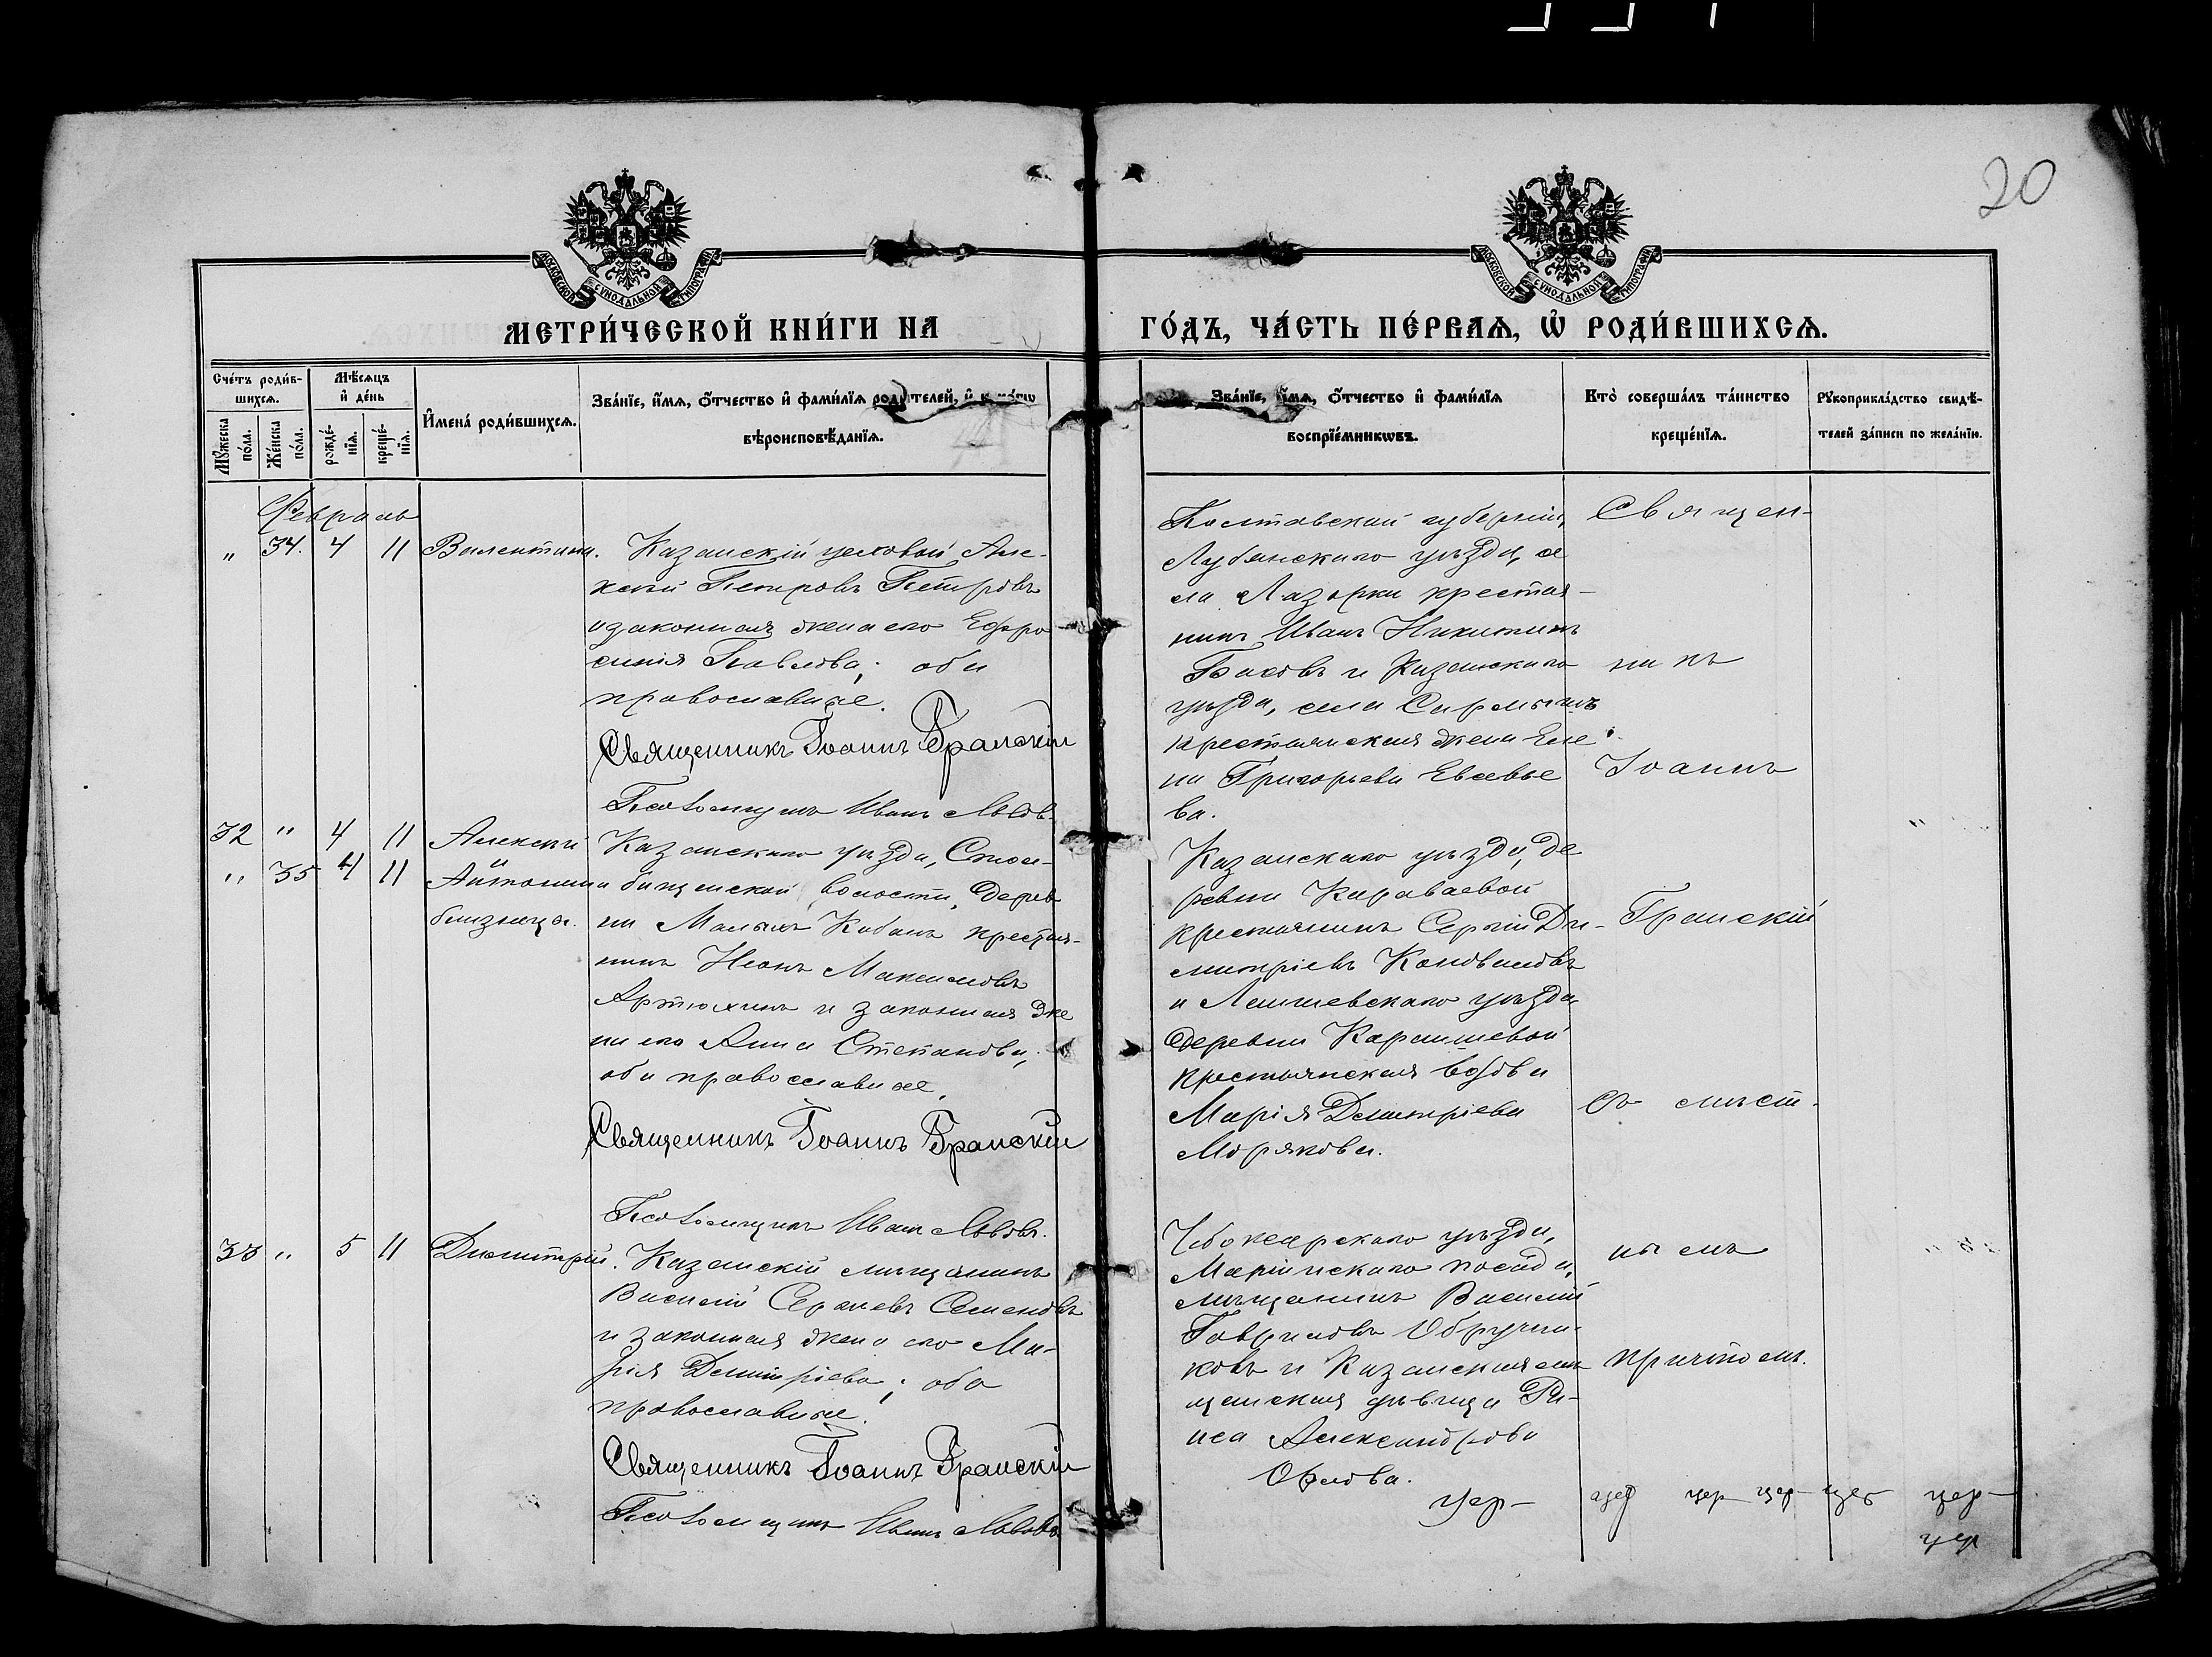 20
МОСКОВСКОЙ СѴНОДАЛЬНОЙ ТИПОГРАФІИ
МОСКОВСКОЙ СѴНОДАЛЬНОЙ ТИПОГРАФІИ
МЕТРИ́ЧЕСКОЙ КНИ́ГИ НА ГО́ДЪ, ЧА́СТЬ ПЕ́РВАѦ, Ѡ҆ РОДИ́ВШИХСѦ.
Сче́тъ роди́в-
шихсѧ.
Мꙋ́жеска по́ла.
Же́нска по́ла.
Мѣ́сѧцъ
и҆ де́нь
рожде́-нїѧ.
креще́-нїѧ.
И҆мена̀ роди́вшихсѧ.
Зва́нїе, и҆́мѧ, ѻ҆́тчество и҆ фами́лїѧ роди́телей, и҆
вѣроисповѣ́данїѧ.
Зва́нїе, и҆́мѧ, ѻ҆́тчество и҆ фами́лїѧ
воспрїе́мникѡвъ.
Кто̀ соверша́лъ та́инство
креще́нїѧ.
Рꙋкоприкла́дство свидѣ́-
телей за́писи по жела́нїю.
Февраль
" 34. 4 11 Валентина.
Казанскій цеховой Але-
ксѣй Петровъ Петровъ
и законная жена его Евфро
синія Павлова; оба
православные.
Священникъ Іоаннъ Гранскій
Псаломщикъ Иванъ Львовъ.
Полтавской губерніи,
Лубенскаго уѣзда, се
ла Лазорки крестья-
нинъ Иванъ Никитинъ
и Казанскаго
уѣзда, села
крестьянская жена Еле
на Григорьева Евсевье
ва.
32 " 4 11 Алексѣй
" 35 4 11 Антонина
близнецы.
Казанскаго уѣзда, Стол-
бищенской волости, дерев
ни Малыхъ Кабанъ крестья-
нинъ Іона Максимовъ
Артюхинъ и законная же
на его Анна Степанова;
оба православные.
Священникъ Іоаннъ Гранскій
Псаломщикъ Иванъ Львовъ.
Казанскаго уѣзда, де
ревни Караваевой
крестьянинъ Сергѣй Ди-
митріевъ Коноваловъ
и Лаишевскаго уѣзда
деревни
крестьянская вдова
Марія Димитріева
Морякова.
33 " 5 11 Димитрій.
Казанскій мѣщанинъ
Василій Сергѣевъ Семеновъ
и законная жена его Ма-
рія Димитріева; оба
православные.
Священникъ Іоаннъ Гранскій
Псаломщикъ Иванъ Львовъ
Чебоксарскаго уѣзда,
Маріинскаго посада,
мѣщанинъ Василій
Гавриловъ Обручни-
ковъ и Казанская мѣ
щанская дѣвица Ра-
иса Александрова
Орлова.
Священ-
никъ
Іоаннъ
Гранскій
съ мѣст-
нымъ
причтомъ.
цер- цер цер- цер- цер цер-
цер